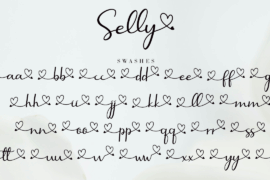 Selly
SWASHES
aa bb cc dd ee ff g
hh ii jj kk ll mm
nn oo pp qq rr ss
tt uu vv ww xx yy